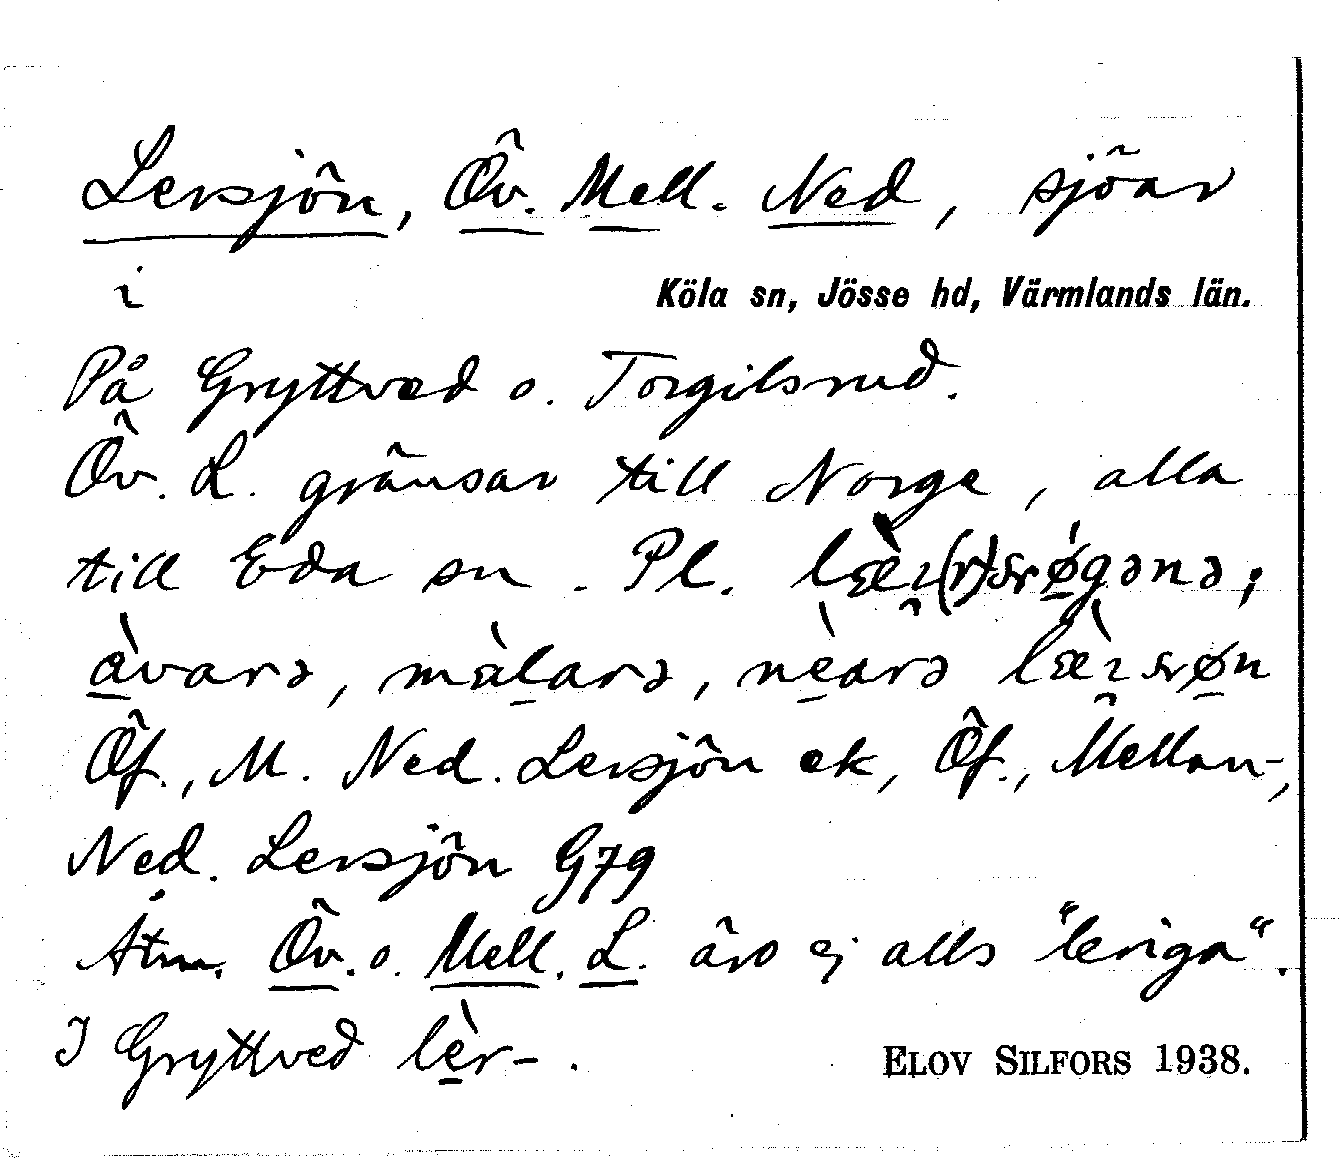 Lersjön, Öv. Mell. Ned, sjöar
i Köla sn, Jösse hd, Värmlands län.
På Gryttved o. Torgilsrud.
Öv. L. gränsar till Norge, alla
till Eda sn. Pl.
Öf., M. Ned. Lersjön ek, Öf., Mellan-,
Ned. Lersjön G79
Åtm. Öv. o. Mell. L. äro ej alls "leriga".
I Gryttved lèr-. ELOV SILFORS 1938.